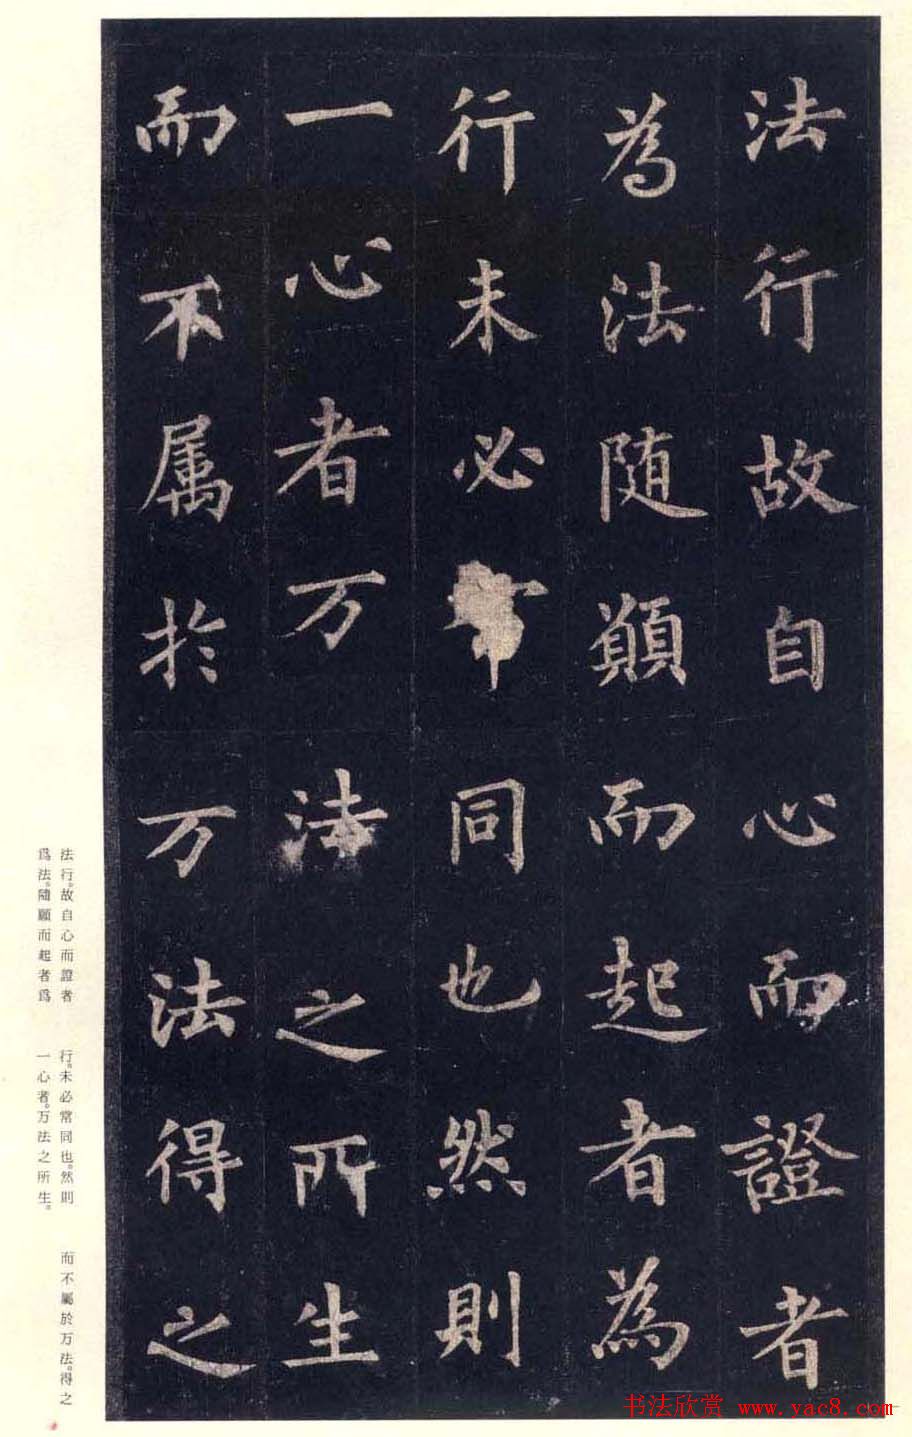 法行故自心而證者
為法随顚而起者為
行未必常同也然則
一心者万法之所生
而不属於万法得之
法行。故自心而證者
爲法。隨願而起者爲
行。未必常同也。然則
一心者。万法之所生。
而不屬於万法。得之
书法欣赏 www.yac8.com